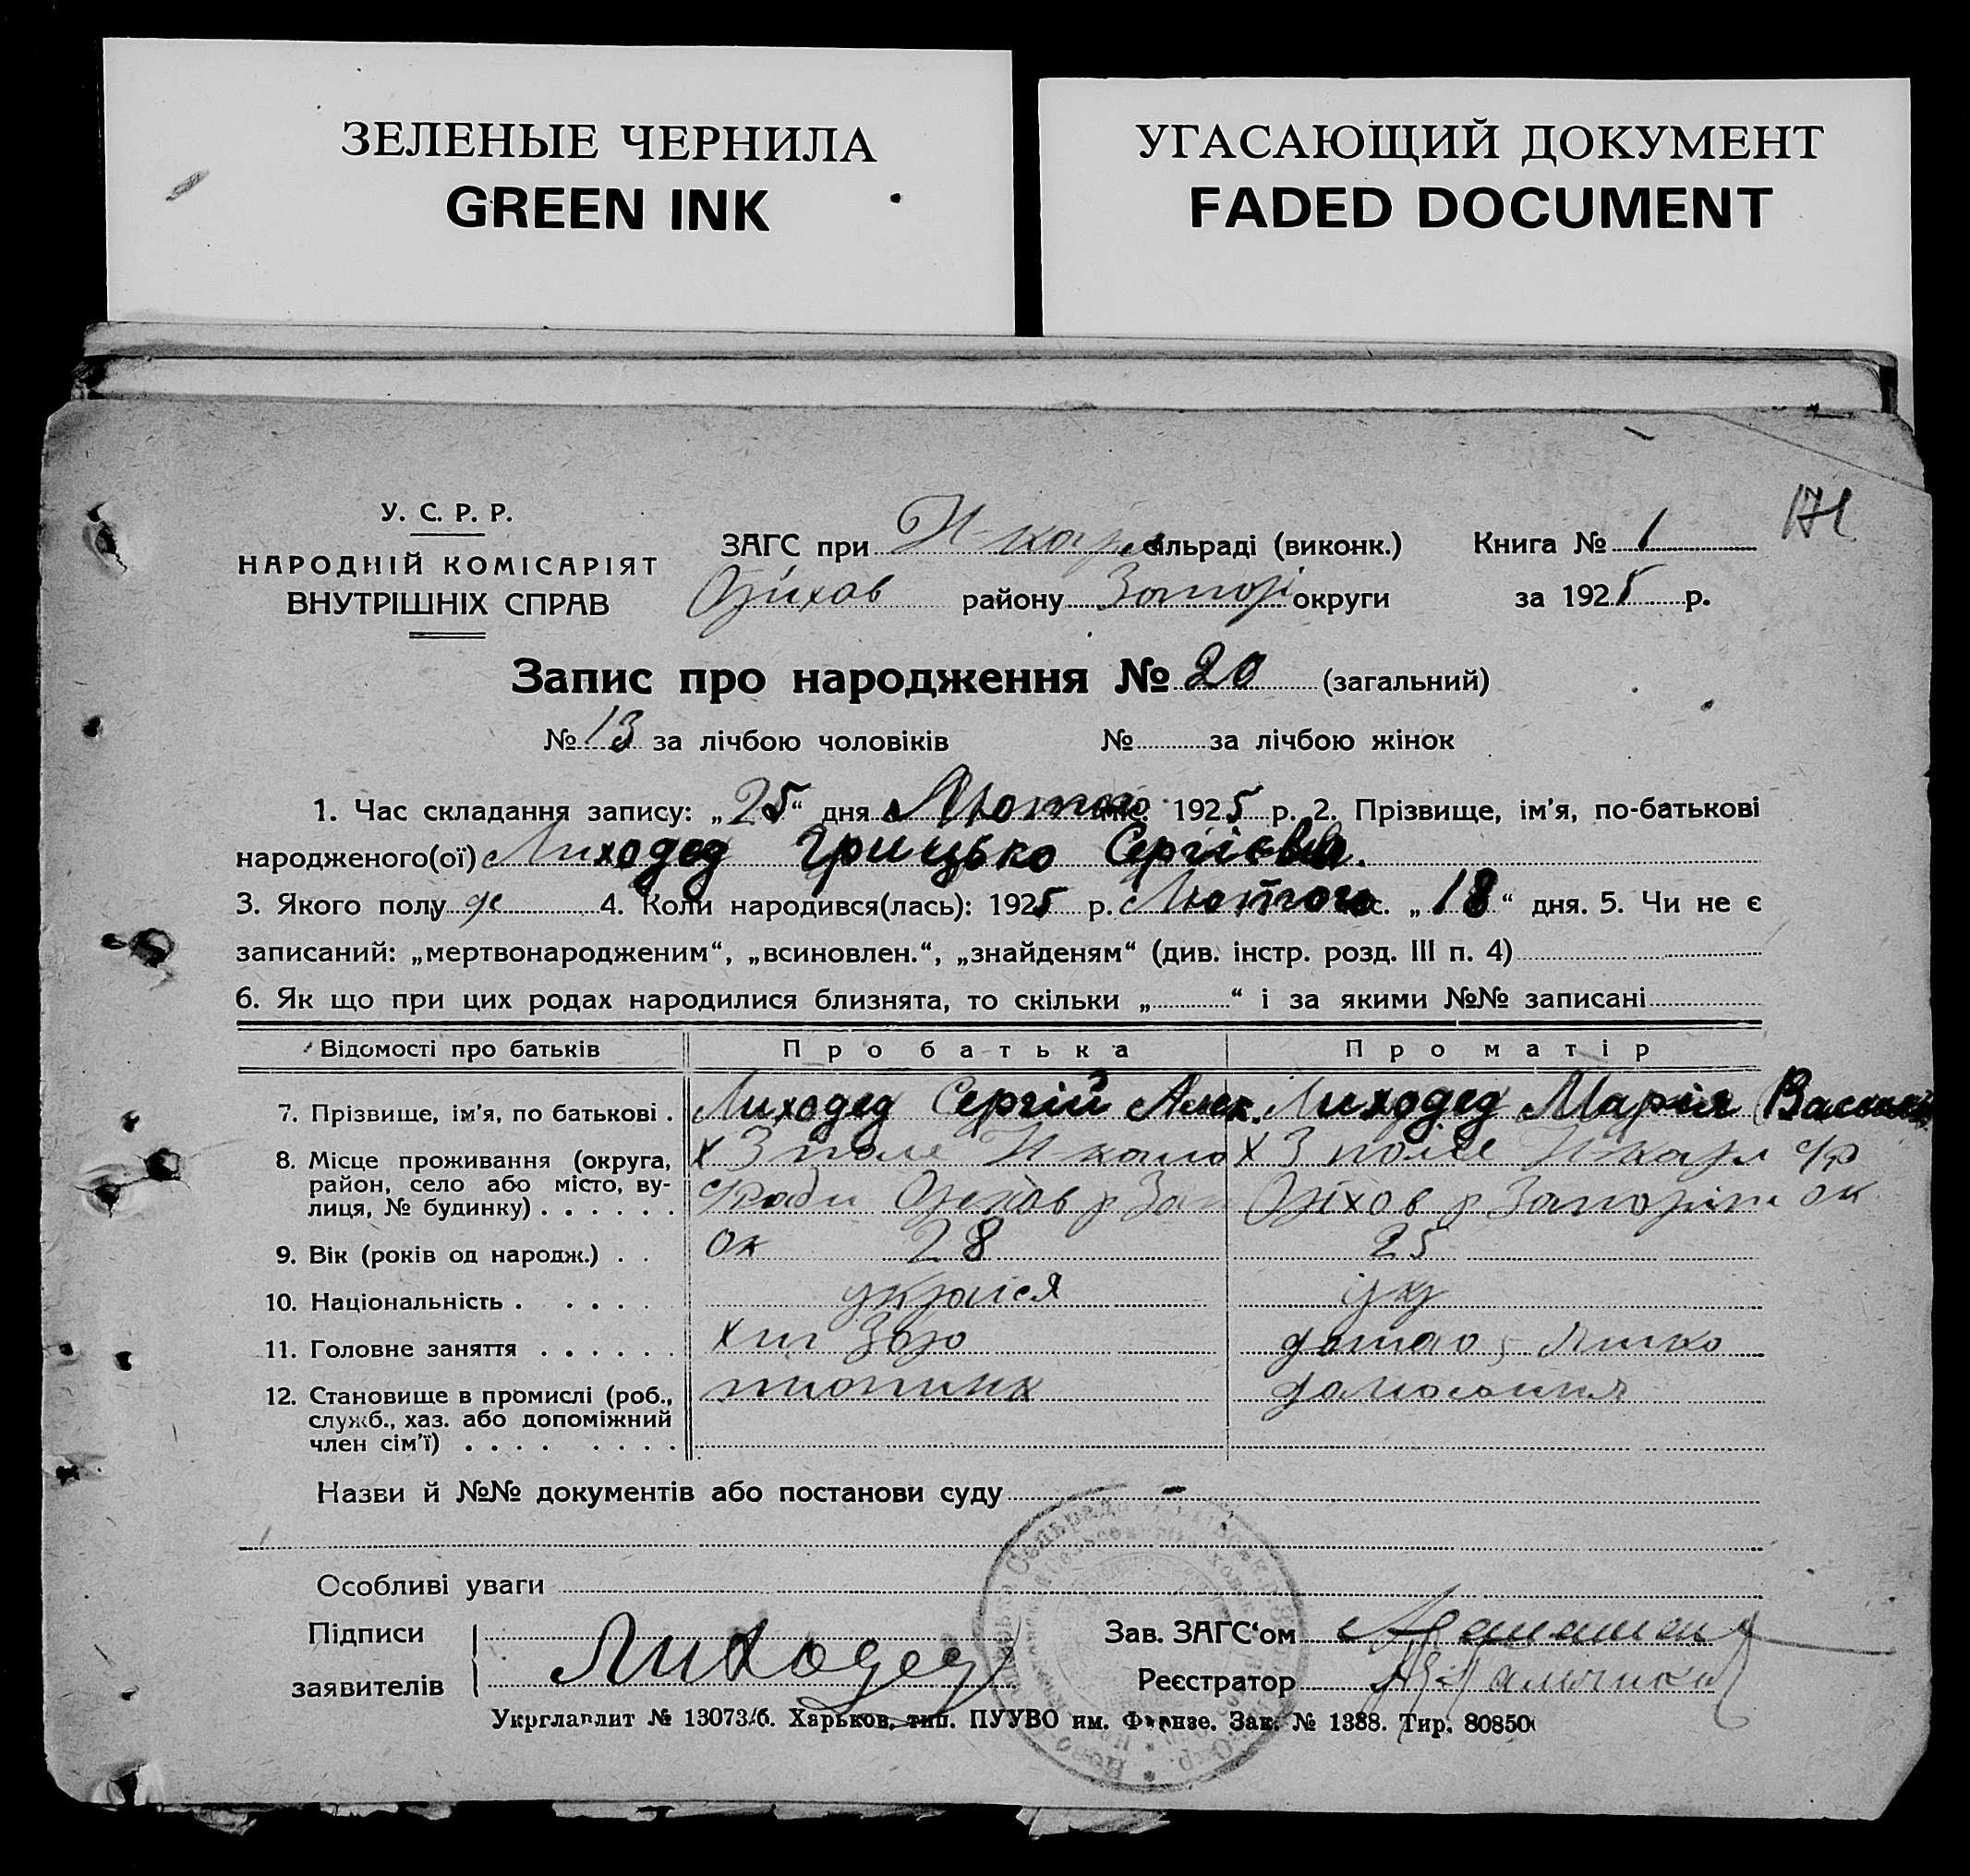 ЗЕЛЕНЫЕ ЧЕРНИЛА
GREEN INK
УГАСАЮЩИЙ ДОКУМЕНТ
FADED DOCUMENT
171
У. С. Р. Р.
НАРОДНІЙ КОМІСАРІЯТ
ВНУТРІШНІХ СПРАВ
ЗАГС при Н-карл сільраді (виконк.) Книга № 1
Оріхов району Запорі округи за 1925 р.
Запис про народження № 20 (загальний)
№ 13 за лічбою чоловіків № за лічбою жінок
1. Час складання запису: „25“ дня Лютого міс. 1925 р. 2. Прізвище, ім'я, по-батькові
народженого(ої) Лиходед Грицько Сергієв.
3. Якого полу че 4. Коли народився(лась): 1925 р. Лютого с. „18“ дня. 5. Чи не є
записаний: „мертвонародженим“, „всиновлен.“, „знайденям“ (див. інстр. розд. III п. 4)
6. Як що при цих родах народилися близнята, то скільки „ “ і за якими №№ записані
Відомості про батьків Про батька Про матір
7. Прізвище, ім'я, по батькові . Лиходед Сергій Алек. Лиходед Марія
8. Місце проживання (округа, район, село або місто, вулиця, № будинку) . . . . . . х 3 поле х 3 поле Н-карл с/р
Оріхов р Оріхов р ок
9. Вік (років од народж.) . . ок 28 25
10. Національність . . . . . україн ук
11. Головне заняття . . . . . .
12. Становище в промислі (роб., служб., хаз. або допоміжний член сім'ї) . . . . . . . .
Назви й №№ документів або постанови суду -
Особливі уваги
Підписи заявителів Лиходед
Зав. ЗАГС'ом
Реєстратор
Укрглавлит № 13073/б. Харьков, тип. ПУУВО им. Фрунзе. Зак. № 1388. Тир. 80850